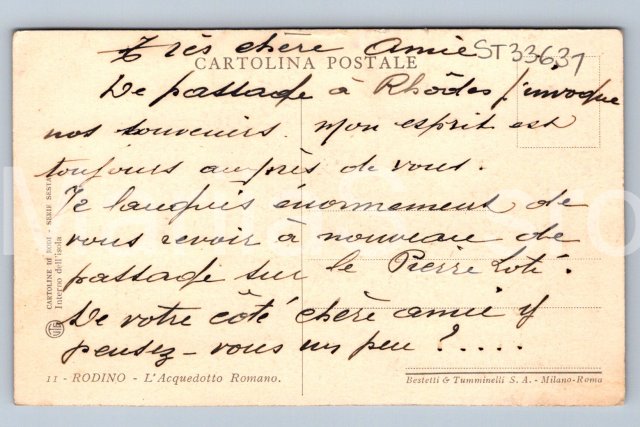 Très chère Amie
ST33631
CARTOLINA POSTALE
De passage à Rhôdes j'invoque
nos souvenirs. Mon esprit est
toujours auprès de vous.
Je languis énormement de
vous revoir à nouveau de
passage sur le Pierre Loti.
De votre côté chère amie y
pensez-vous un peu ?.....
CARTOLINE DI RODI - SERIE SESTA
Interno dell'isola
11 - RODINO - L'Acquedotto Romano.
Bestetti & Tumminelli S. A. - Milano-Roma